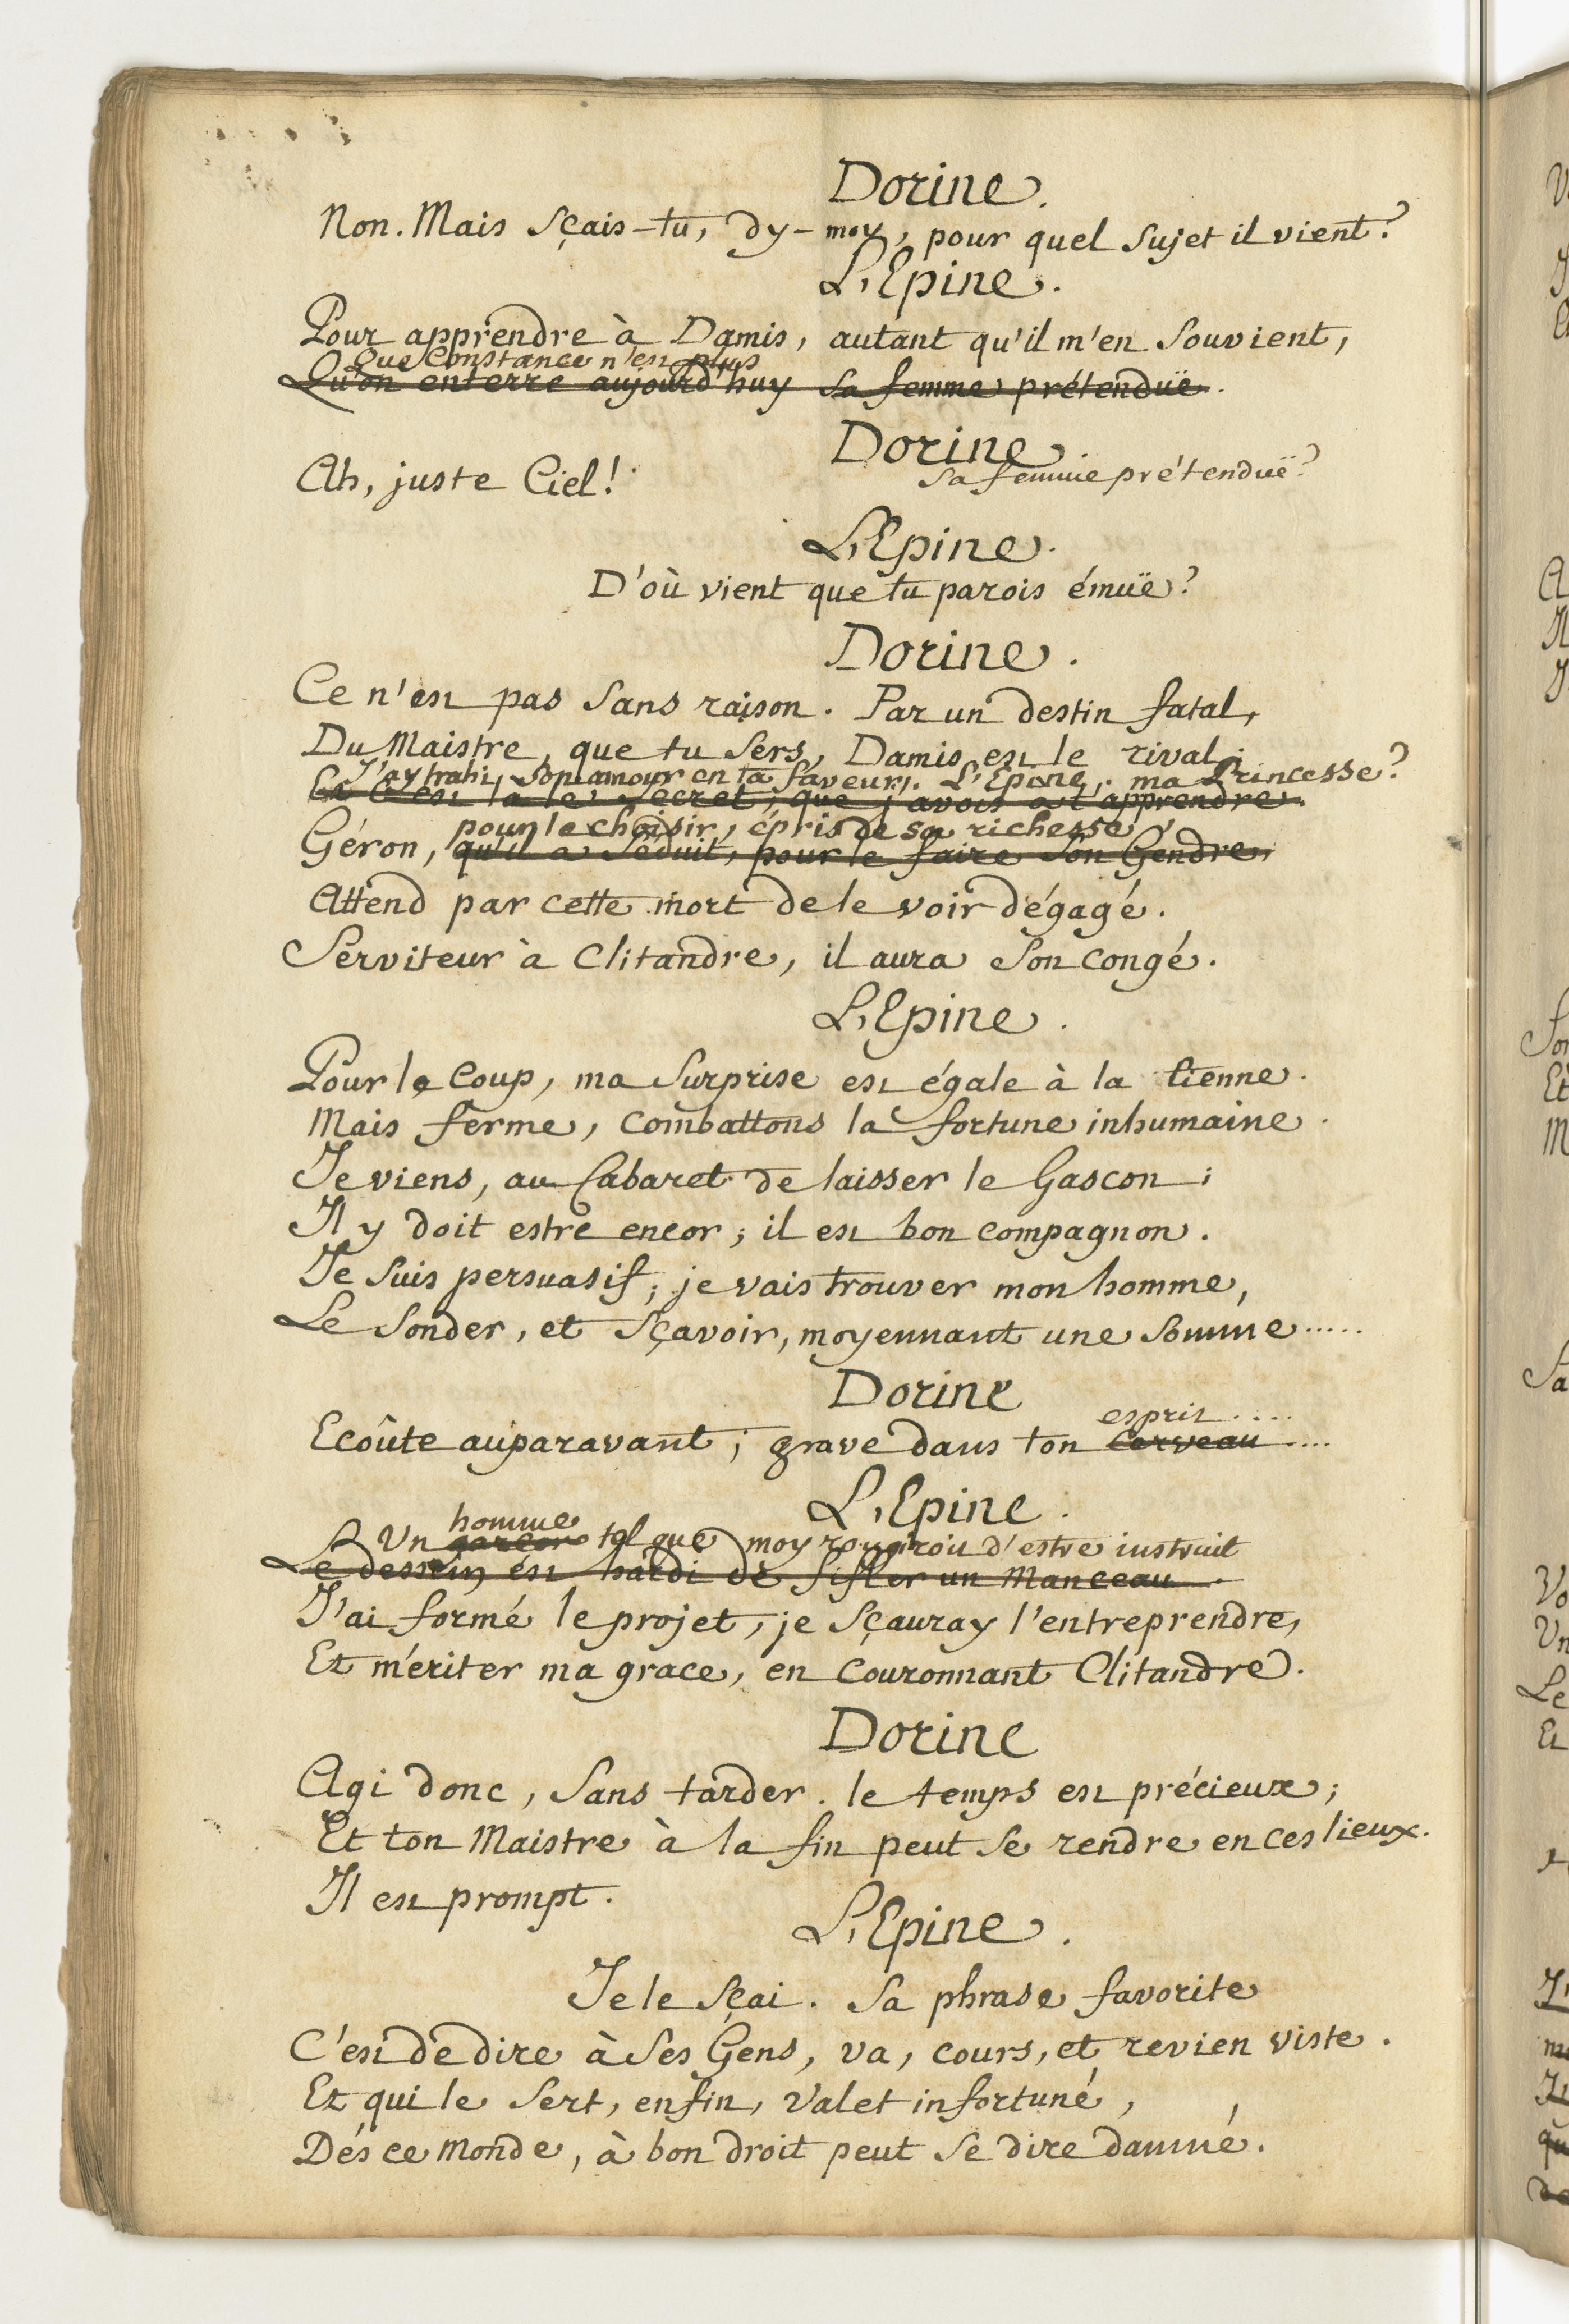 Dorine.
Non. Mais sçais-tu, dy-moy, pour quel sujet il vient?
L'Epine.
Pour apprendre à Damis, autant qu'il m'en souvient,
Que Constance n'est plus
Qu'on enterre aujourd'huy sa femme prétenduë.
Dorine
Ah, juste Ciel!
sa femme prétenduë?
L'Epine.
D'où vient que tu parois émuë?
Dorine.
Ce n'est pas sans raison. Par un destin fatal,
Du Maistre, que tu sers, Damis est le rival;
J'ay trahi son amour en ta faveur. L'Epine, ma Princesse?
Et c'est là le secret, que j'avois à t'apprendre.
pour le choisir, épris de sa richesse,
Géron, qu'il a séduit, pour le faire son Gendre,
Attend par cette mort de le voir dégagé.
Serviteur à Clitandre, il aura son congé.
L'Epine.
Pour le coup, ma surprise est égale à la tienne.
Mais ferme, combattons la fortune inhumaine.
Je viens, au Cabaret de laisser le Gascon;
Il y doit estre encor; il est bon compagnon.
Je suis persuasif; je vais trouver mon homme,
Le sonder, et sçavoir, moyennant une somme.....
Dorine
esprit.....
Ecoûte auparavant; grave dans ton cerveau....
L'Epine.
homme
Un garçon tel que moy rougiroit d'estre instruit
Le dessein est hardi de sifler un Manceau.
J'ai formé le projet, je sçauray l'entreprendre,
Et mériter ma grace, en couronnant Clitandre.
Dorine
Agi donc, sans tarder. le temps est précieux;
Et ton Maistre à la fin peut se rendre en ces lieux.
Il est prompt.
L'Epine.
Je le sçai. Sa phrase favorite
C'est de dire à ses Gens, va, cours, et revien viste.
Et qui le sert, enfin, Valet infortuné,
Dés ce monde, à bon droit peut se dire damné.